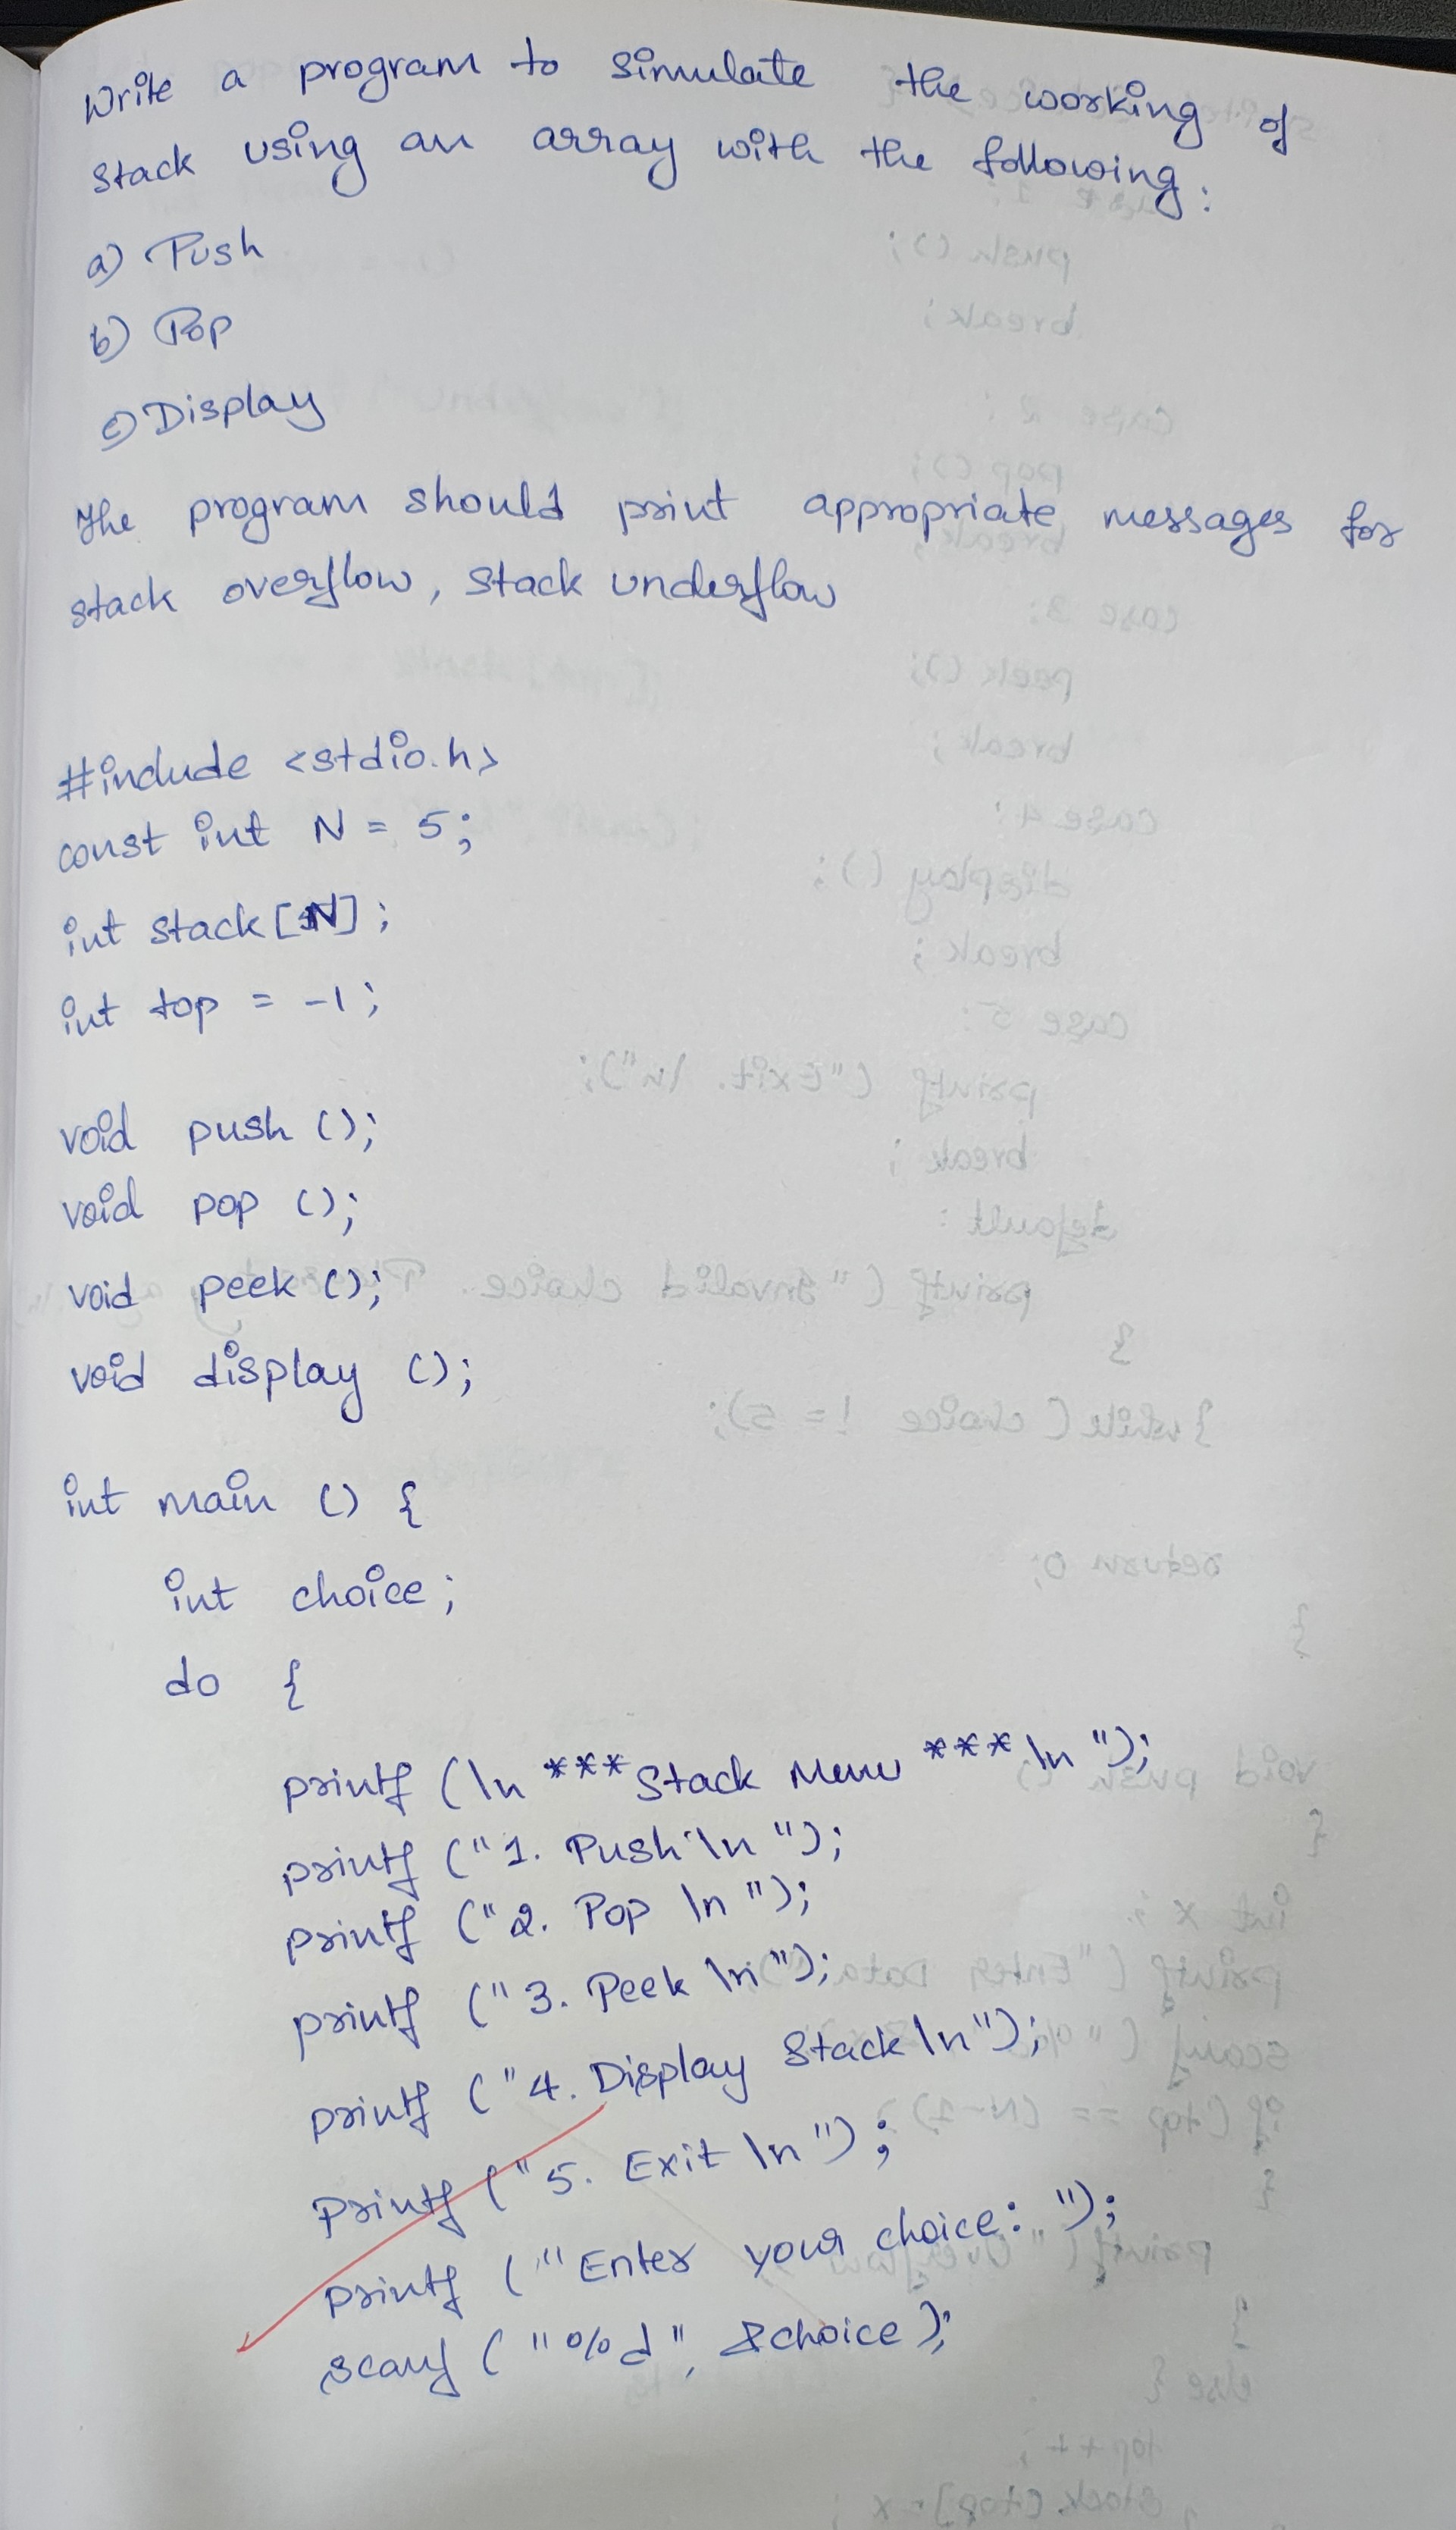 Write a program to simulate the working of
stack using an array with the following:
a) Push
b) Pop
c) Display
The program should print appropriate messages for
stack overflow, stack underflow
#include <stdio.h>
const int N = 5;
int stack[N];
int top = -1;
void push ();
void pop ();
void peek ();
void display ();
int main () {
int choice;
do {
printf (\n *** Stack Menu *** \n ");
printf ("1. Push \n ");
printf ("2. Pop \n ");
printf ("3. Peek \n ");
printf ("4. Display Stack \n");
printf ("5. Exit \n ");
printf ("Enter your choice: ");
scanf ("%d", &choice);